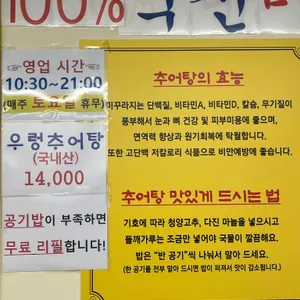 100% 국산
영업 시간
10:30~21:00
(매주 토요일 휴무)
우렁추어탕
(국내산)
14,000
공기밥이 부족하면
무료 리필합니다!
추어탕의 효능
미꾸라지는 단백질, 비타민A, 비타민D, 칼슘, 무기질이
풍부해서 눈과 뼈 건강 및 피부미용에 좋으며,
면역력 향상과 원기회복에 탁월합니다.
또한 고단백 저칼로리 식품으로 비만예방에 좋습니다.
추어탕 맛있게 드시는 법
기호에 따라 청양고추, 다진 마늘을 넣으시고
들깨가루는 조금만 넣어야 국물이 깔끔해요.
밥은 "반 공기"씩 나눠서 말아 드세요.
(한 공기를 전부 말아 드시면 밥이 퍼져서 맛이 감소됩니다.)